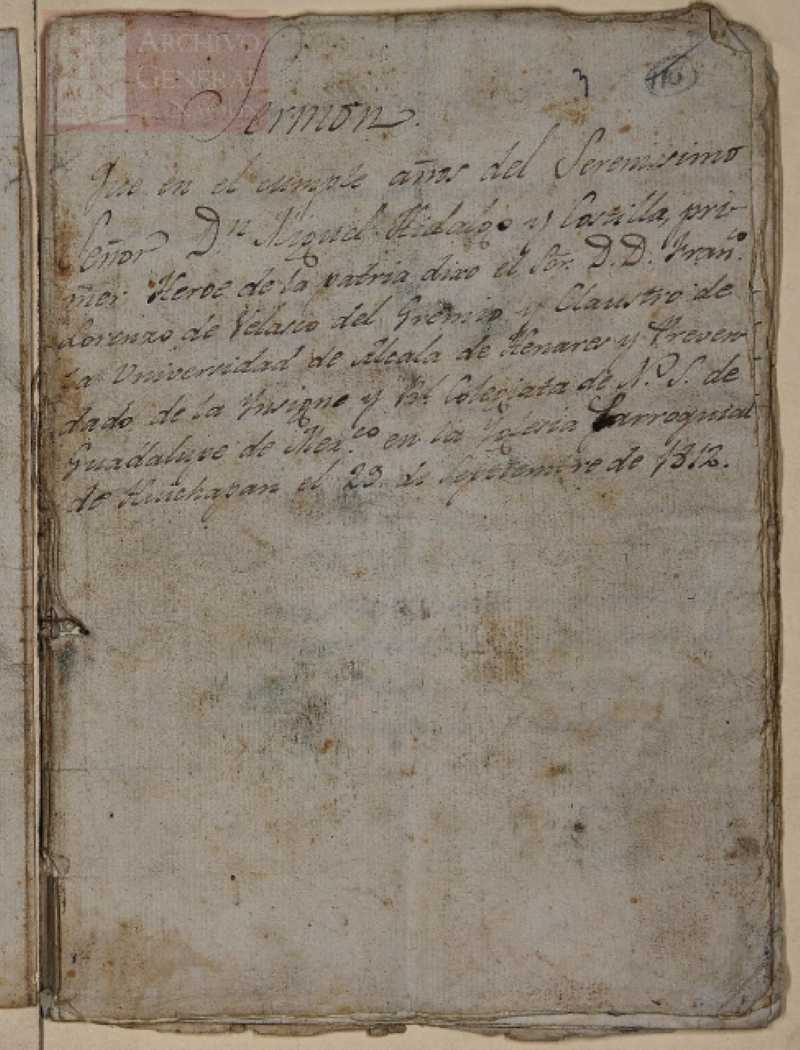 ARCHIVO
GENERAL
AGN
3
Sermon.
Que en el cumple años del Serenisimo
Señor Dn Miguel Hidalgo y Costilla, pri-
mer Heroe de la patria dixo el Sor. D. D. Franco.
Lorenzo de Velasco del Gremio y Claustro de
la Universidad de Alcala de Henares y Preven-
dado de la Ynsigne y Rl. Colegiata de Na. S. de
Guadalupe de Mexco. en la Yglesia Parroquial
de Huichapan el 29. de Septiembre de 1812.